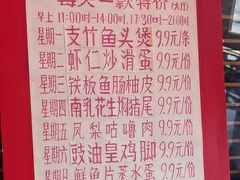 每天一款特价(大厅)
早上11:00-14:00,17:30-21:00时
星期一 支竹鱼头煲 9.9元/条
星期二 虾仁炒滑蛋 9.9元/份
星期三 铁板鱼肠柚皮 9.9元/份
星期四 南乳花生焖猪尾 9.9元/份
星期五 凤梨咕噜肉 9.9元/份
星期六 豉油皇鸡脚 9.9元/份
星期日 鲜鱼片蒸水蛋 9.9元/份